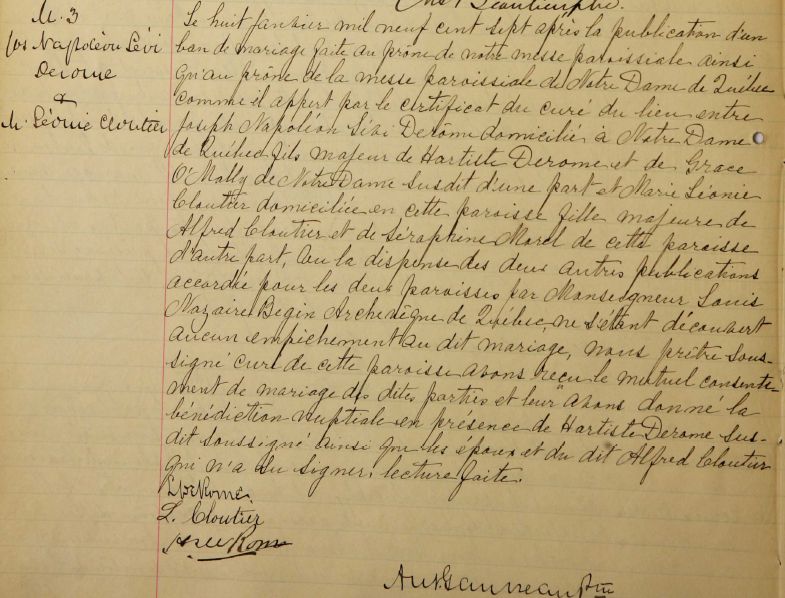 M. 3
Jos Napoléon Lévi
Derome
&
M. Léonie Cloutier
Le huit janvier mil neuf cent sept après la publication d'un
ban de mariage faite au prône de notre messe paroissiale ainsi
qu'au prône de la messe paroissiale de Notre Dame de Québec
comme il appert par le certificat du curé du lieu entre
Joseph Napoléon Lévi Derome domicilié à Notre Dame
de Québec fils majeur de Hartiste Derome et de Grace
O'Mally de Notre Dame susdit d'une part et Marie Léonie
Cloutier domiciliée en cette paroisse fille majeure de
Alfred Cloutier et de Séraphine Morel de cette paroisse
d'autre part, vu la dispense des deux autres publications
accordée pour les deux paroisses par Monseigneur Louis
Nazaire Begin Archevêque de Québec, ne s'étant découvert
aucun empêchement au dit mariage, nous prêtre sous-
signé curé de cette paroisse avons reçu le mutuel consente-
ment de mariage des dites parties et leur avons donné la
bénédiction nuptiale en présence de Hartiste Derome sus-
dit soussigné ainsi que les époux et du dit Alfred Cloutier
qui n'a su signer. lecture faite.
L. Cloutier